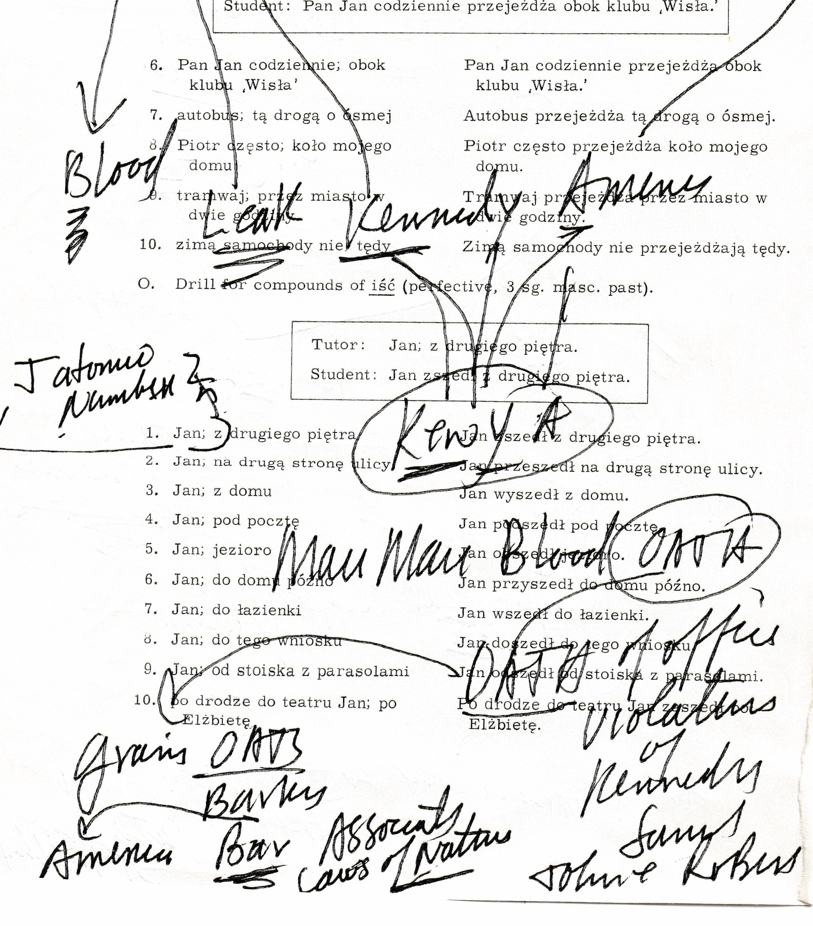 Student: Pan Jan codziennie przejeżdża obok klubu ‚Wisła.’
6. Pan Jan codziennie; obok klubu ‚Wisła’
Pan Jan codziennie przejeżdża obok klubu ‚Wisła.’
7. autobus; tą drogą o ósmej
Autobus przejeżdża tą drogą o ósmej.
8. Piotr często; koło mojego domu
Piotr często przejeżdża koło mojego domu.
Blood
9. tramwaj; przez miasto w dwie godziny
Tramwaj przejeżdża przez miasto w dwie godziny.
Leak Kennedy
10. zimą samochody nie tędy
Zimą samochody nie przejeżdżają tędy.
O. Drill for compounds of iść (perfective, 3 sg. masc. past).
Tutor: Jan; z drugiego piętra.
Student: Jan zszedł z drugiego piętra.
Number
KenyA
1. Jan; z drugiego piętra
Jan zszedł z drugiego piętra.
2. Jan; na drugą stronę ulicy
Jan przeszedł na drugą stronę ulicy.
3. Jan; z domu
Jan wyszedł z domu.
4. Jan; pod pocztę
Jan podszedł pod pocztę.
5. Jan; jezioro
Jan obszedł jezioro.
Mau Mau Blood OATH
6. Jan; do domu późno
Jan przyszedł do domu późno.
7. Jan; do łazienki
Jan wszedł do łazienki.
8. Jan; do tego wniosku
Jan doszedł do tego wniosku.
9. Jan; od stoiska z parasolami
Jan odszedł od stoiska z parasolami.
10. po drodze do teatru Jan; po Elżbietę
Po drodze do teatru Jan zaszedł po Elżbietę.
OATH of office
violations
of
Kennedys
Grains OATS
Barley
America Bar
Laws of Nations